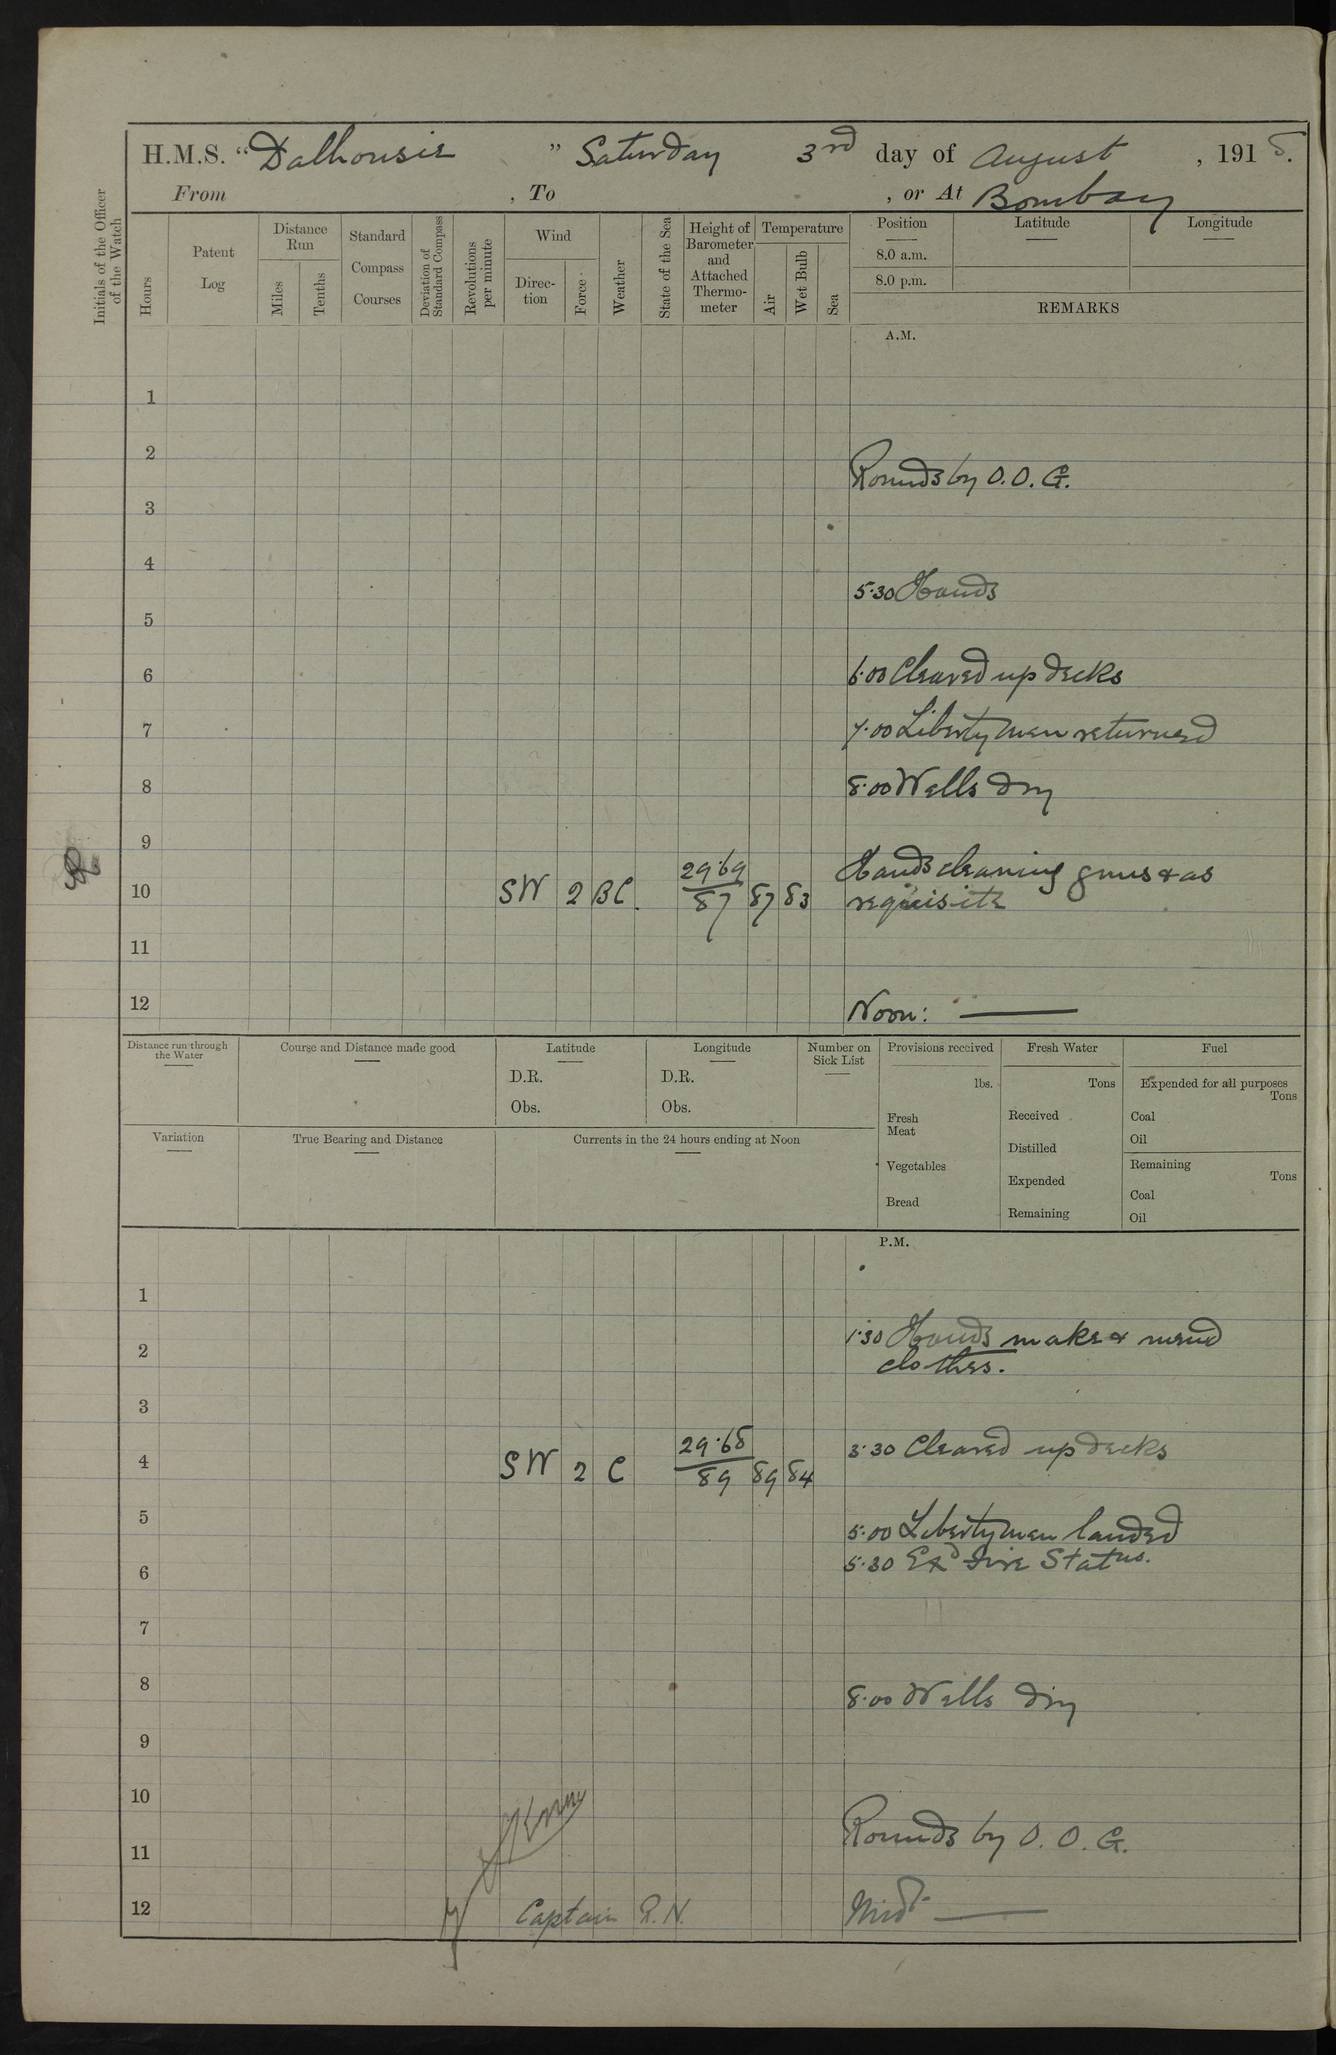 H.M.S. "Dalhousie" Saturday 3rd day of August, 1918.
From , To , or At Bombay
Initials of the Officer of the Watch
Hours
Patent Log
Distance Run
Miles
Tenths
Standard Compass Courses
Deviation of Standard Compass
Revolutions per minute
Wind
Direction
Force
Weather
State of the Sea
Height of Barometer and Attached Thermometer
Temperature
Air
Wet Bulb
Sea
Position Latitude Longitude
8.0 a.m.
8.0 p.m.
REMARKS
A.M.
1
2
Rounds by O.O.G.
3
4
5.30 Hands
5
6 6.00 Cleared up decks
7 7.00 Liberty men returned
8 8.00 Wells dry
9
Hands cleaning guns & as
10 SW 2 BC. 29.69/87 87 83 requisite
11
12 Noon:
Distance run through the Water
Course and Distance made good
Latitude
D.R.
Obs.
Longitude
D.R.
Obs.
Number on Sick List
Variation
True Bearing and Distance
Currents in the 24 hours ending at Noon
Provisions received
lbs.
Fresh Meat
Vegetables
Bread
Fresh Water
Tons
Received
Distilled
Expended
Remaining
Fuel
Expended for all purposes
Tons
Coal
Oil
Remaining
Tons
Coal
Oil
P.M.
1
1.30 Hands make & mend
2 clothes.
3
4 SW 2 C 29.68/89 89 84 3.30 Cleared up decks
5 5.00 Liberty men landed
5.30 Exd Fire Statns.
6
7
8 8.00 Wells dry
9
10
Rounds by O.O.G.
11
12 Captain R.N. Midt.